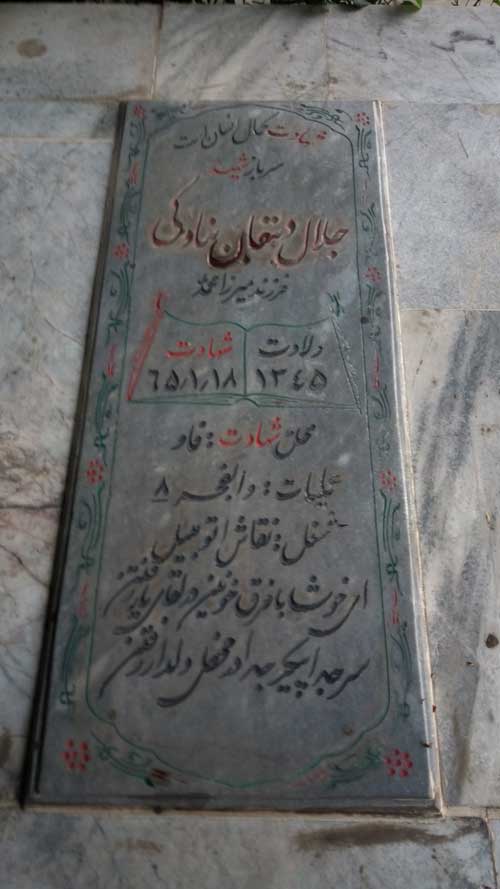 شهادت کمال انسان است
سرباز شهید
جلال دهقان بنادکی
فرزند میرزا محمد
ولادت شهادت
۱۳۴۵ ۶۵/۱/۱۸
محل شهادت: فاو
عملیات: والفجر ۸
شغل: نقاش اتومبیل
ای خوشا با فرق خونین در لقای یار رفتن
سر جدا پیکر جدا در محفل دلدار رفتن